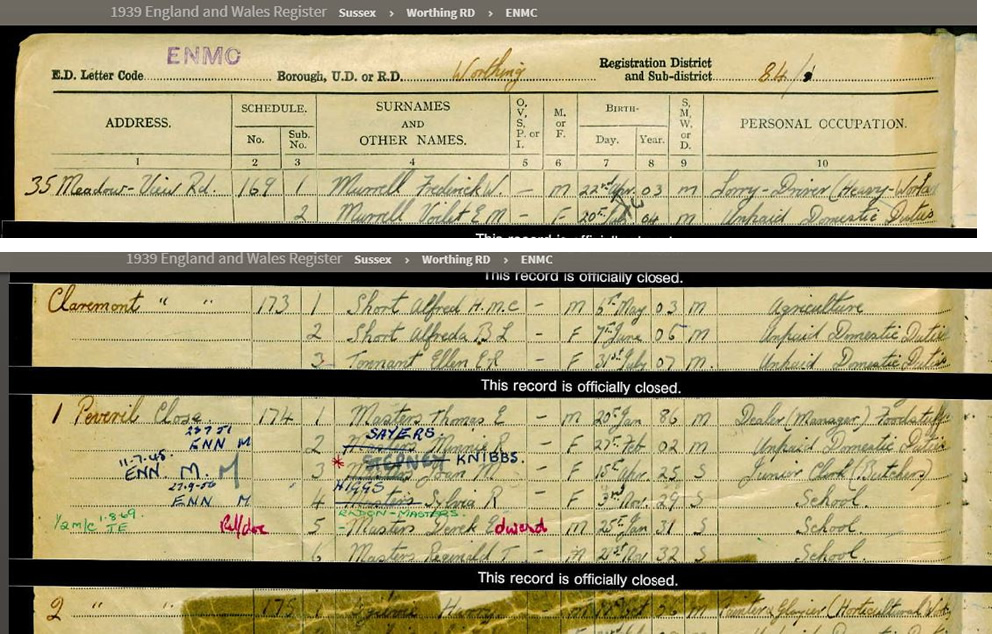 1939 England and Wales Register Sussex > Worthing RD > ENMC
ENMC
E.D. Letter Code Borough, U.D. or R.D. Worthing Registration District and Sub-district 84/1
ADDRESS. SCHEDULE. No. Sub. No. SURNAMES AND OTHER NAMES. O, V, S, P, or I. M. or F. BIRTH- Day. Year. S, M, W, or D. PERSONAL OCCUPATION.
1 2 3 4 5 6 7 8 9 10
35 Meadow-View Rd. 169 1 Murrell Frederick W. – M 22nd Apr. 03 M Lorry-Driver (Heavy-Worker
2 Murrell Voilet E M – F 20th 04 M Unpaid Domestic Duties
This record is officially closed.
1939 England and Wales Register Sussex > Worthing RD > ENMC
This record is officially closed.
Claremont " " 173 1 Short Alfred H.M.C – M 6th May 03 M Agriculture
2 Short Alfreda B L – F 7th June 05 M Unpaid Domestic Duties
3 Tennant Ellen E R – F 31st July 07 M Unpaid Domestic Duties
This record is officially closed.
1 Peveril Close. 174 1 Masters Thomas E – M 20th Jan 86 M Dealer (Manager) Foodstuffs
23 7 51 ENN M SAYERS
2 Masters R – F 27th Feb 02 M Unpaid Domestic Duties
11-7-45. ENN. M. KNIBBS.
3 Masters Joan M – F 15th Apr. 25 S Junior Clerk (Butchers)
27-9-50 ENN M HIGGS
4 Masters Sylvia R – F 3rd Nov. 29 S School
1-8-69. JE RADON-MASTERS
5 Masters Derek Edward M 25th Jan 31 S School
6 Masters Reginald T – M 21st 32 S School.
This record is officially closed.
2 " " 175 1 Henry – M Painter & Glazier (Horticultural